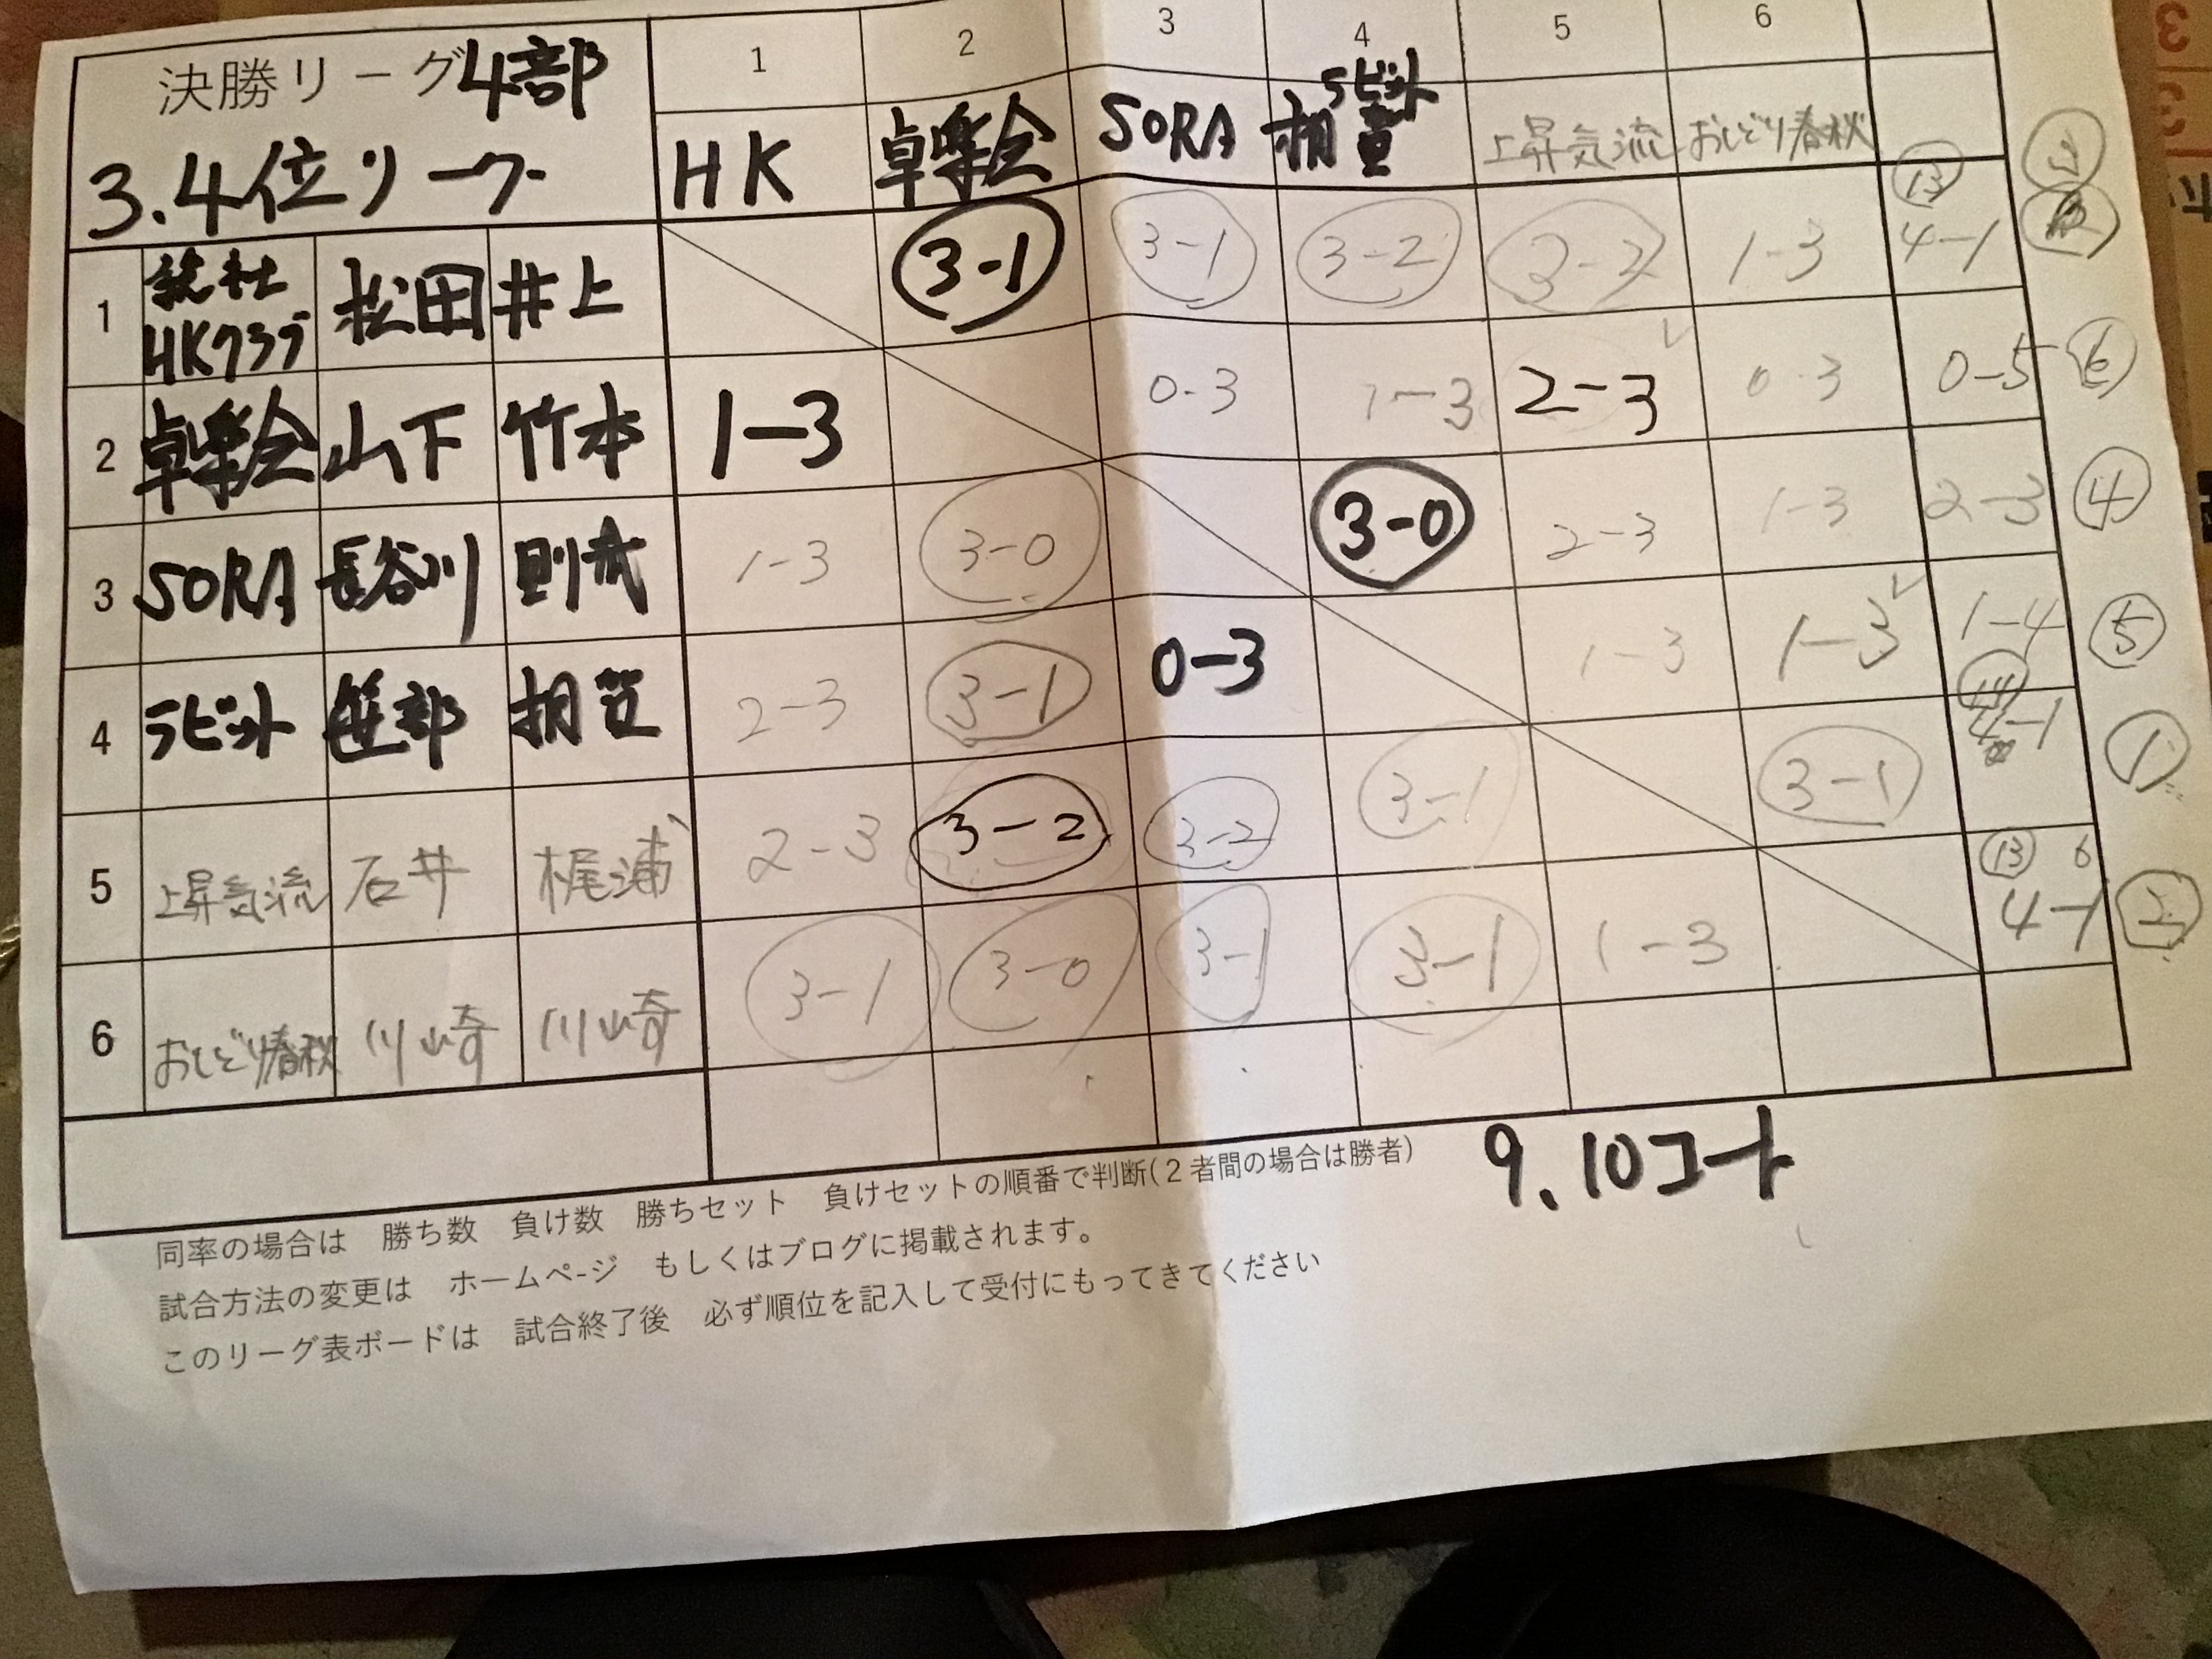 決勝リーグ 4部
3.4位リーグ
1 2 3 4 5 6
HK 卓楽会 SORA ラビット 上昇気流 おしどり春秋
1 総社HKクラブ 松田 井上 3-1 3-1 3-2 3-2 1-3 ⑬ 4-1 ③
2 卓楽会 山下 竹本 1-3 0-3 1-3 2-3 0-3 0-5 ⑥
3 SORA 長谷川 則武 1-3 3-0 3-0 2-3 1-3 2-3 ④
4 ラビット 笹部 2-3 3-1 0-3 1-3 1-3 1-4 ⑤
5 上昇気流 石井 梶浦 2-3 3-2 3-2 3-1 3-1 ⑭ 4-1 ①
6 おしどり春秋 川崎 川崎 3-1 3-0 3-1 3-1 1-3 ⑬ 6 4-1 ②
9.10コート
同率の場合は 勝ち数 負け数 勝ちセット 負けセットの順番で判断(2者間の場合は勝者)
試合方法の変更は ホームページ もしくはブログに掲載されます。
このリーグ表ボードは 試合終了後 必ず順位を記入して受付にもってきてください